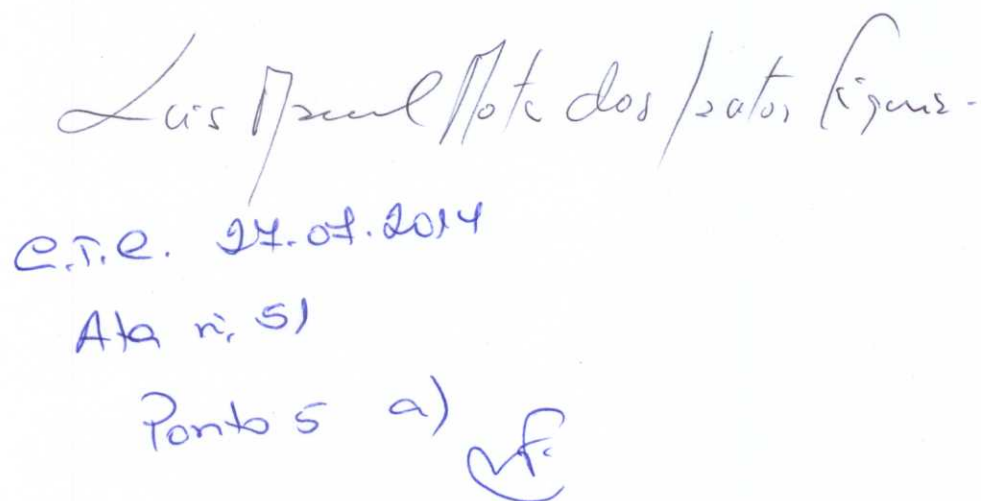 Luis Manuel Mota dos Santos Figueira.
C.T.C. 27.01.2014
Ata nº. 51
Ponto 5 a)